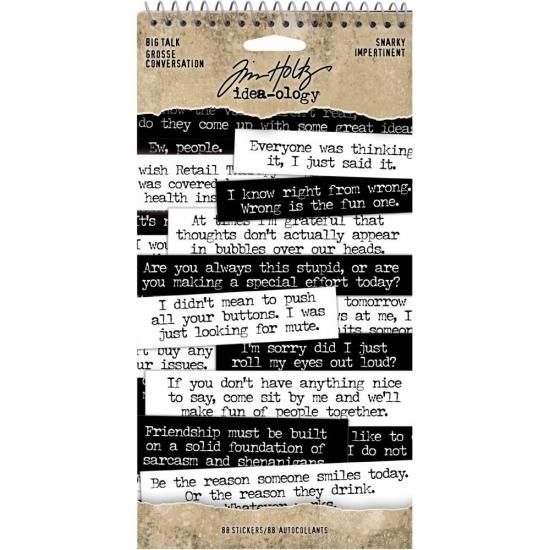 BIG TALK
GROSSE
CONVERSATION
SNARKY
IMPERTINENT
Tim Holtz
idea-ology
do they come up with some great ideas
Ew, people.
Everyone was thinking
it, I just said it.
wish Retail
was covered
health ins
I know right from wrong.
Wrong is the fun one.
It's
At times I'm grateful that
thoughts don't actually appear
in bubbles over our heads.
I wou
Are you always this stupid, or are
you making a special effort today?
I didn't mean to push
all your buttons. I was
just looking for mute.
tomorrow
s at me, I
its someon
t buy any
ur issues.
I'm sorry did I just
roll my eyes out loud?
If you don't have anything nice
to say, come sit by me and we'll
make fun of people together.
Friendship must be built
on a solid foundation of
sarcasm and shenanigans.
like to
I do not
Be the reason someone smiles today.
Or the reason they drink.
Whatever works.
88 STICKERS/88 AUTOCOLLANTS